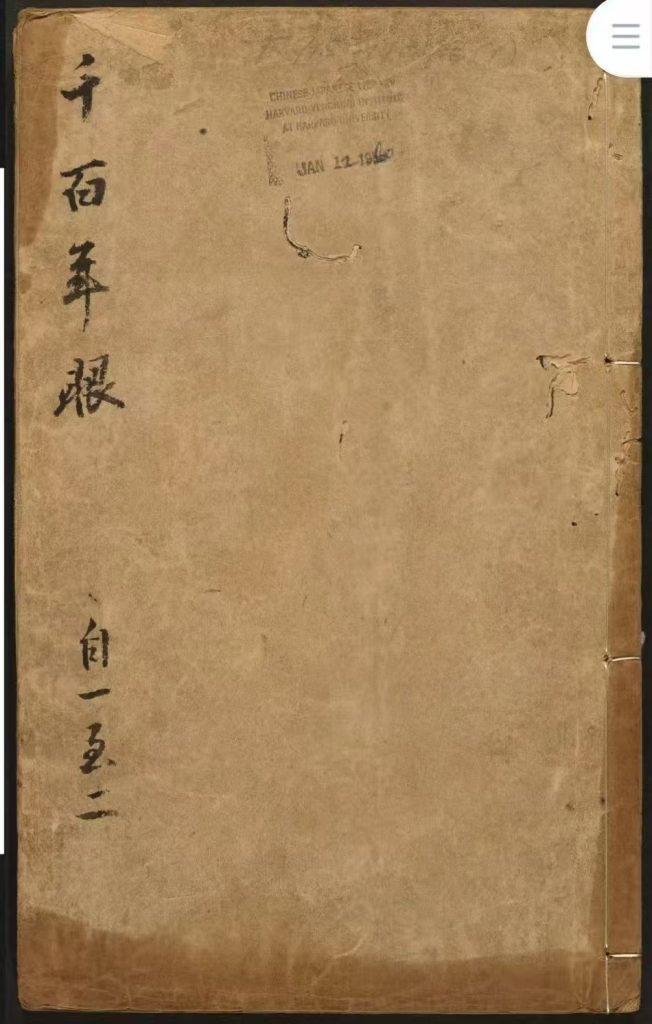 千百年眼
自一至二
CHINESE-JAPANESE LIBRARY
HARVARD-YENCHING INSTITUTE
AT HARVARD UNIVERSITY
JAN 12 1960